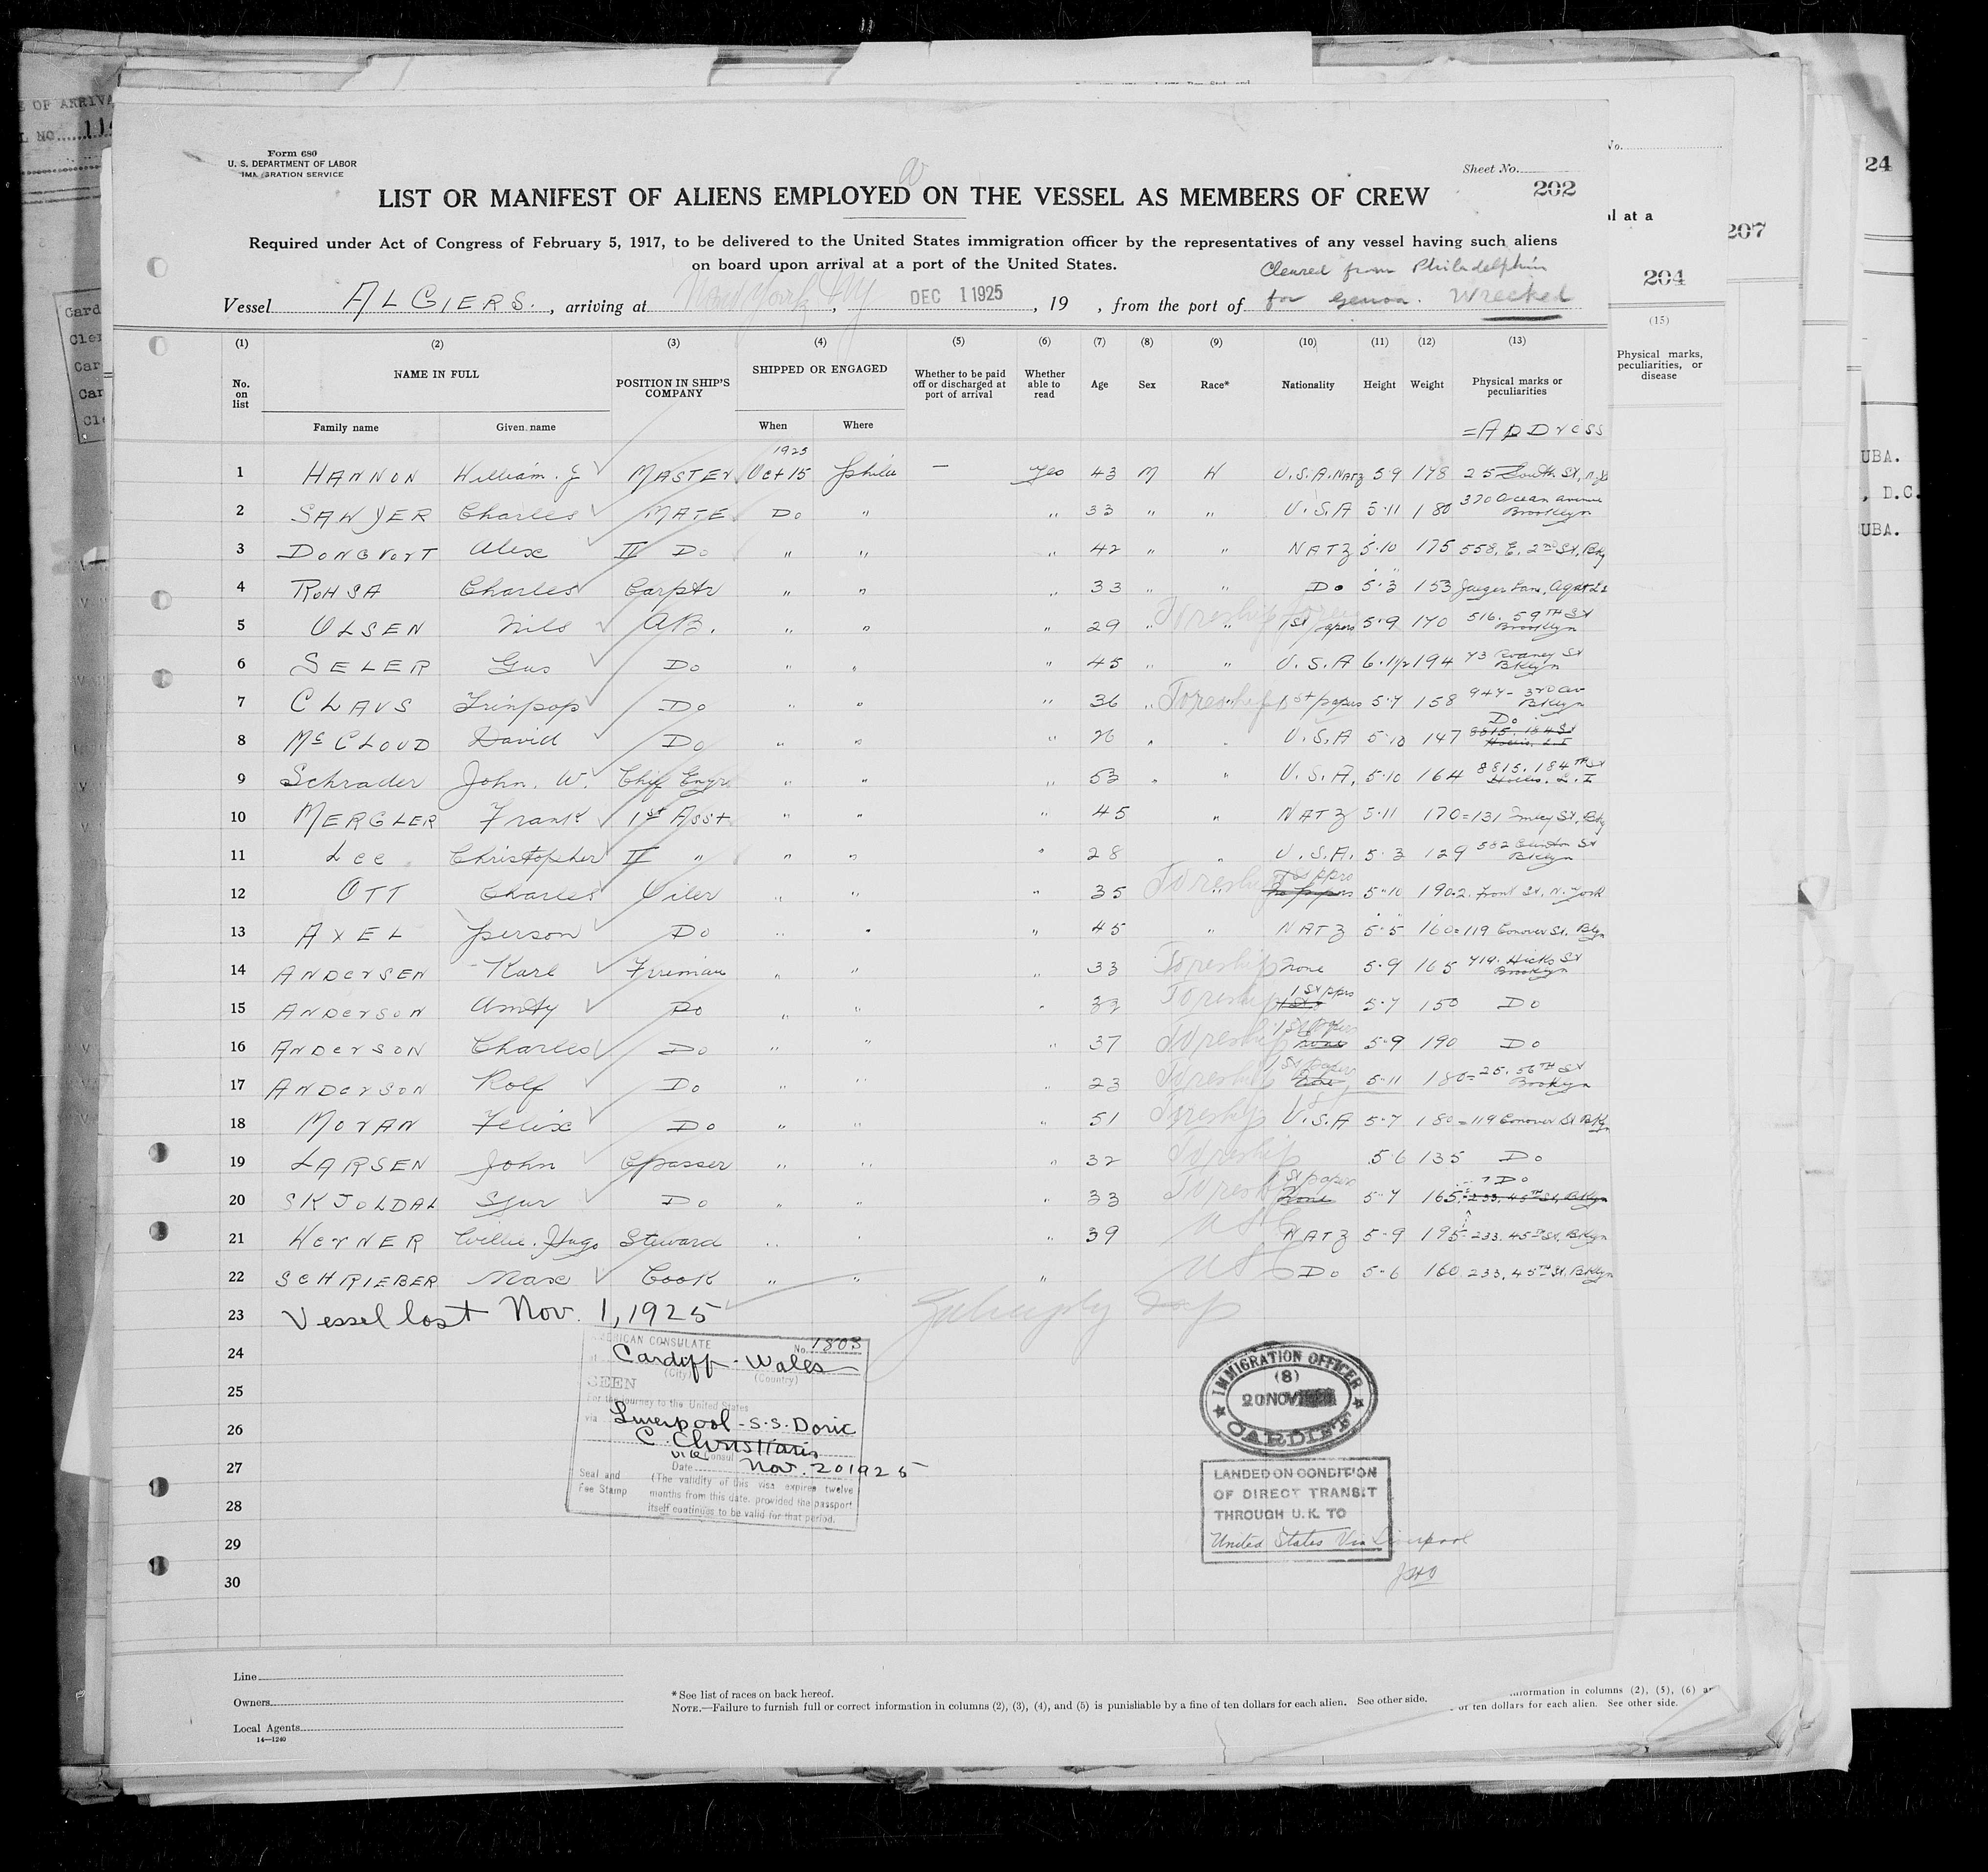 E OF ARRIVA
L NO.
Form 680
U. S. DEPARTMENT OF LABOR
IMMIGRATION SERVICE
Sheet No.
202
LIST OR MANIFEST OF ALIENS EMPLOYED ON THE VESSEL AS MEMBERS OF CREW
Required under Act of Congress of February 5, 1917, to be delivered to the United States immigration officer by the representatives of any vessel having such aliens
on board upon arrival at a port of the United States.
Cleared from Philadelphia
Vessel ALGIERS., arriving at New York NY, DEC 1 1925, 19 , from the port of for Genoa. Wrecked
(1) (2) (3) (4) (5) (6) (7) (8) (9) (10) (11) (12) (13)
No. on list NAME IN FULL POSITION IN SHIP'S COMPANY SHIPPED OR ENGAGED Whether to be paid off or discharged at port of arrival Whether able to read Age Sex Race* Nationality Height Weight Physical marks or peculiarities
Family name Given name When Where =ADDrESS
1925
1 HANNON William. J MASTER Oct 15 Phila — Yes 43 M W U.S.A. NATZ 5·9 178 25 South St, N.Y.
2 SAWYER Charles MATE Do " " 33 " " U.S.A 5·11 180 370 Ocean avenue Brooklyn
3 DONGVORT Alex II Do " " " 42 " " NATZ 5·10 175 558. E. 2nd St, Bkly
4 ROHSA Charles Carptr " " " 33 " " Do 5·3 153
5 OLSEN Nils AB. " " " 29 " Foreship " 1st papers 5·9 170 516. 59TH St Brooklyn
6 SELER Gus Do " " " 45 " " U.S.A 6·1½ 194 73 St Bklyn
7 CLAVS Do " " " 36 " Foreship 1st papers 5·7 158 947- 3rd av Bklyn
8 McCLOUD David Do " " " 26 " " U.S.A 5·10 147 Do 8815. 184 St Hollis. L.I
9 Schrader John. W. Chif Engr " " " 53 " " U.S.A. 5·10 164 8815. 184TH St Hollis. L.I
10 MERGLER Frank 1st Asst " " " 45 " NATZ 5·11 170=131 St, Bkly
11 Lee Christopher II " " " " 28 " U.S.A. 5·3 129 582 Clinton St Bklyn
12 OTT Charles Oiler " " " 35 Foreship " 1st pprs no papers 5·10 190 2. Front St, N. York
13 AXEL person Do " " " 45 " NATZ 5·5 160=119 Conover St. Bkln
14 ANDerSEN Karl Fireman " " " 33 Foreship none 5·9 165 414. Hicks St Brooklyn
15 ANDerSON Do " " " 32 Foreship 1st pprs 5·7 150 Do
16 ANDerSON Charles Do " " " 37 Foreship 1st papers none 5·9 190 Do
17 ANDerSON Rolf Do " " " 23 Foreship 1st papers none 5·11 180=25. 56TH St Brooklyn
18 MorAN Felix Do " " " 51 Foreship U.S.A 5·7 180=119 Conover St Bkln
19 LARSEN John " " " 32 Foreship 5·6 135 Do
20 SKJOLDAL Sjur Do " " " 33 Foreship 1st paper None 5·7 165 Do 233. 45TH St, Bklyn
21 HerNER Willie. Hugo Steward " " " 39 USC NATZ 5·9 195 233. 45TH St, Bklyn
22 SCHRIEBER Max Cook " " " USC Do 5·6 160 233, 45TH St, Bklyn
23 Vessel lost Nov. 1, 1925
24
25
26
27
28
29
30
AMERICAN CONSULATE
No. 1803
at Cardiff - Wales
(City) (Country)
SEEN
For the journey to the United States
via Liverpool - S.S. Doric
Vice Consul
Date Nov. 20 1925
Seal and Fee Stamp
(The validity of this visa expires twelve
months from this date, provided the passport
itself continues to be valid for that period.
IMMIGRATION OFFICER
(8)
20 NOV
CARDIFF
LANDED ON CONDITION
OF DIRECT TRANSIT
THROUGH U.K. TO
United States Via Liverpool
Line
Owners
Local Agents
14—1240
*See list of races on back hereof.
NOTE.—Failure to furnish full or correct information in columns (2), (3), (4), and (5) is punishable by a fine of ten dollars for each alien. See other side.
No.
al at a
204
207
24
(15)
Physical marks,
peculiarities, or
disease
UBA.
, D.C.
UBA.
formation in columns (2), (5), (6) a
of ten dollars for each alien. See other side.